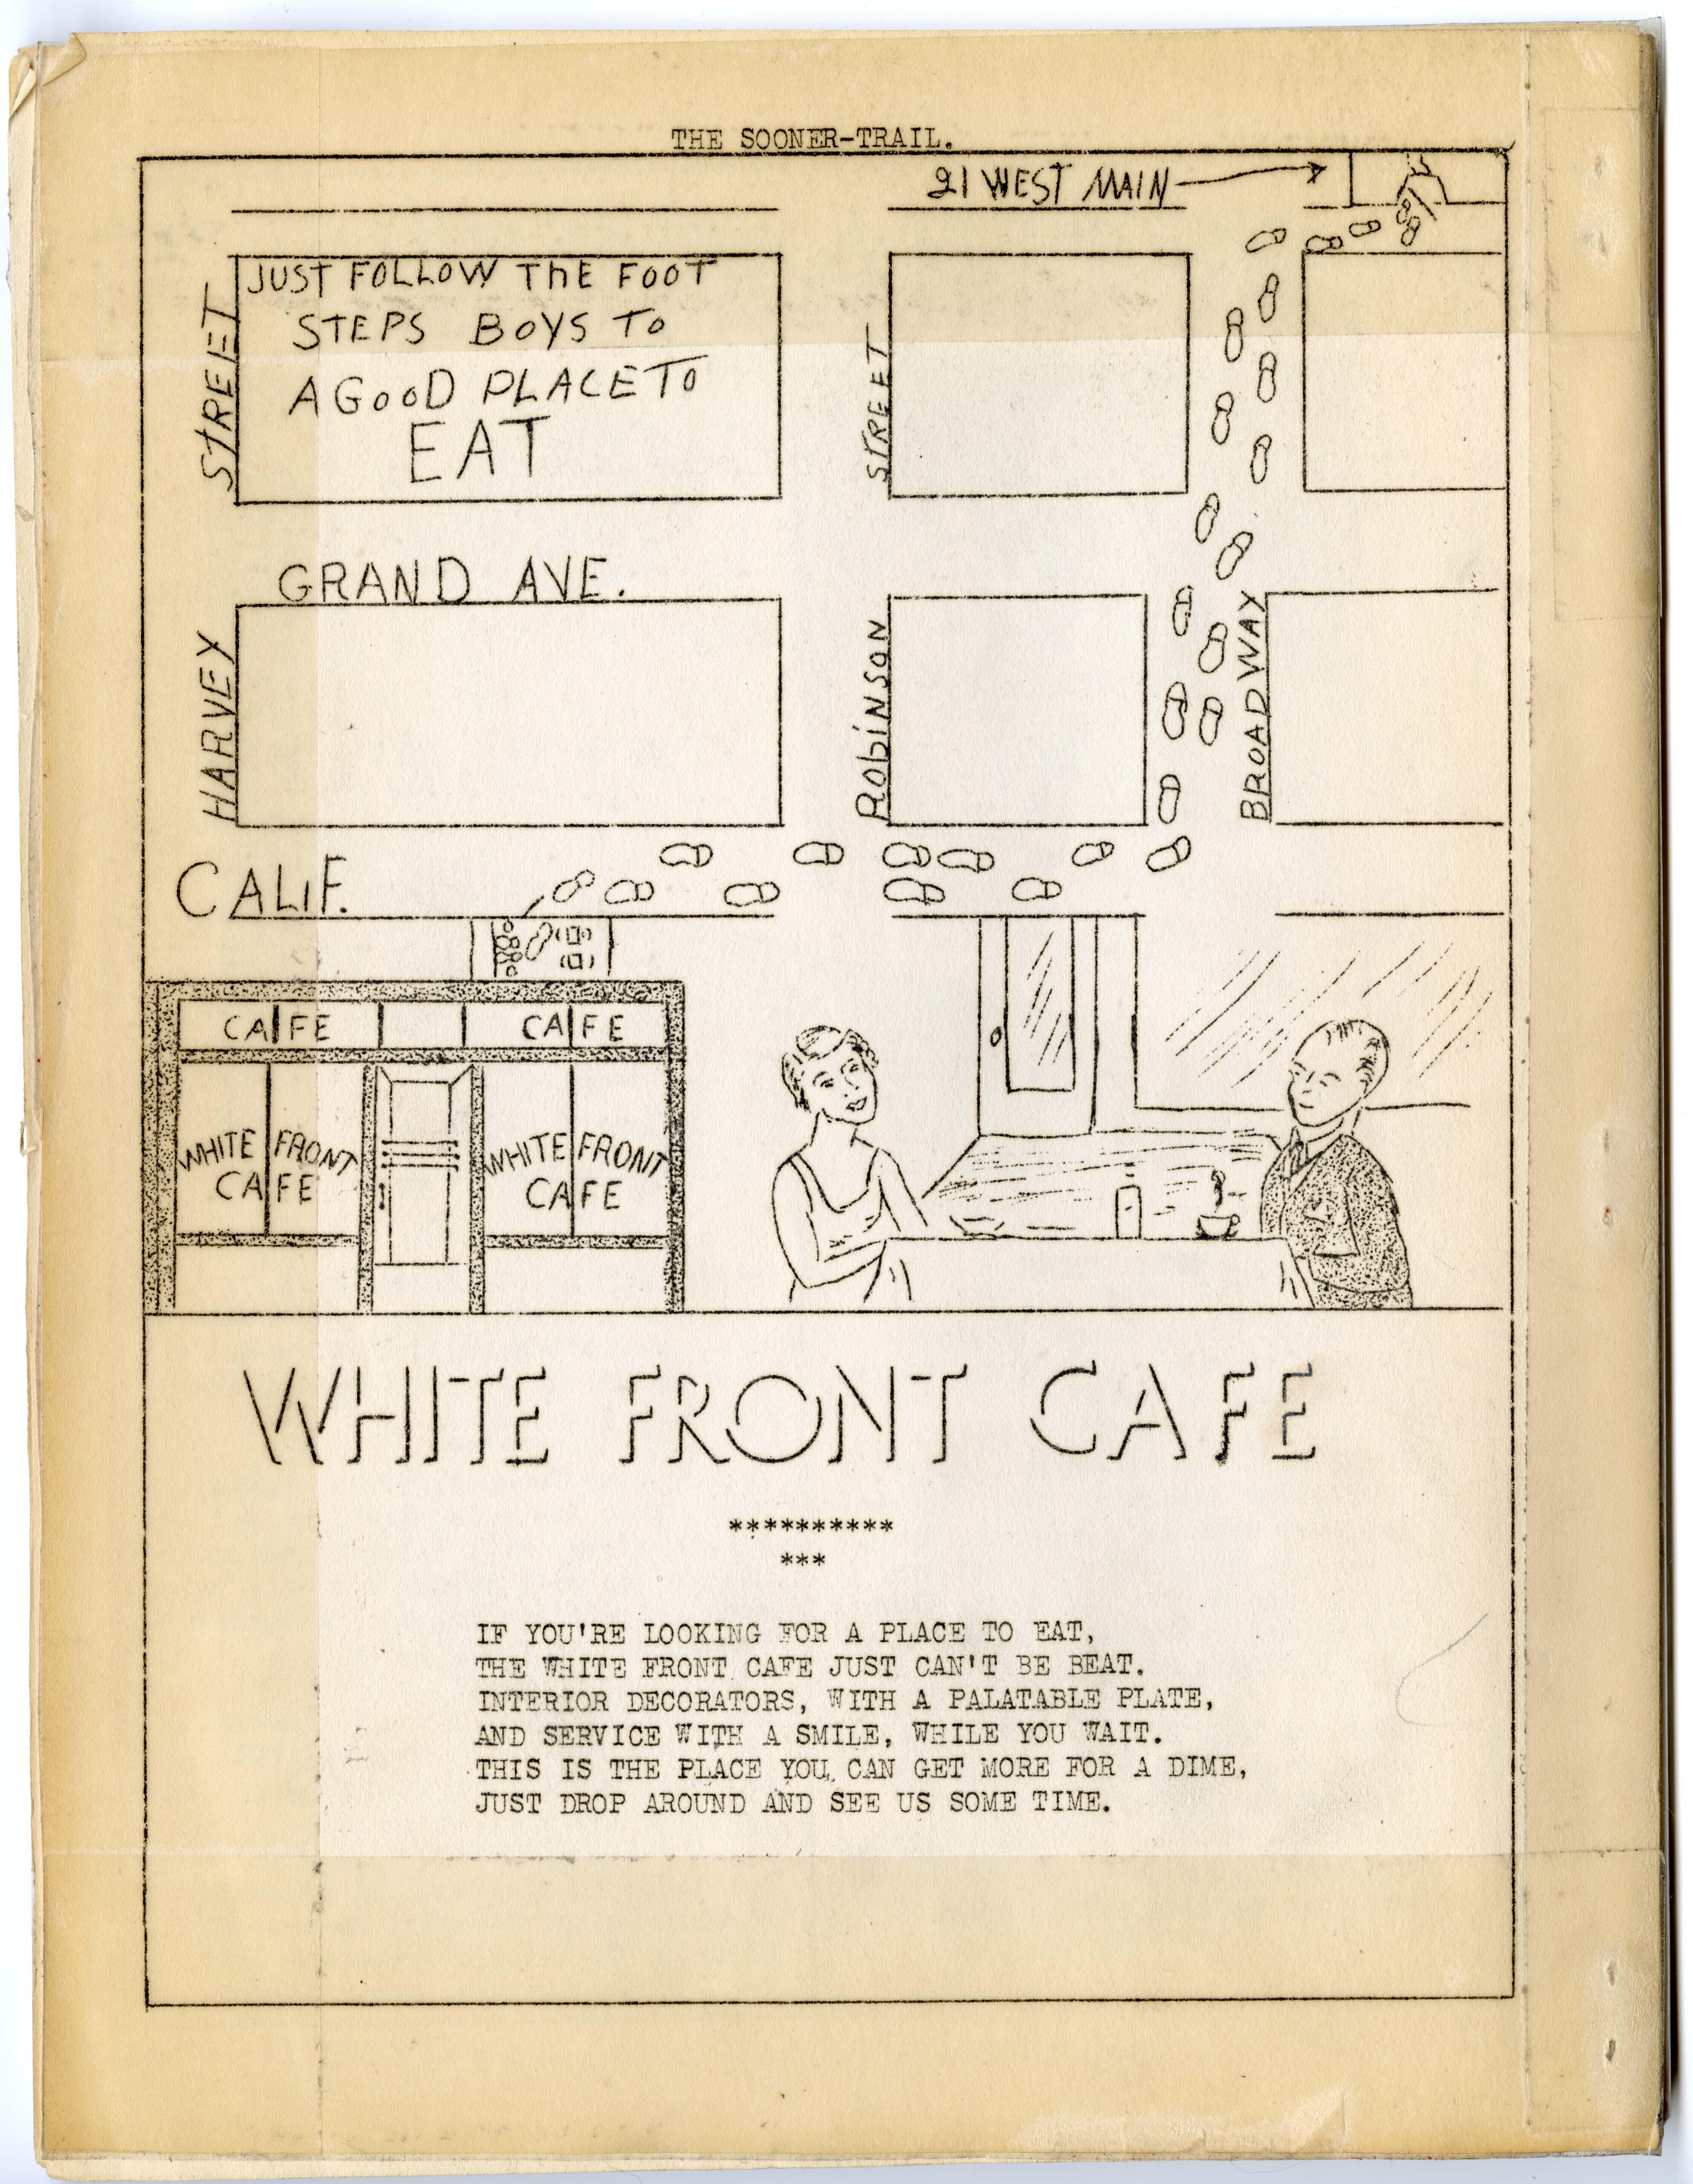 THE SOONER-TRAIL.
21 WEST MAIN
JUST FOLLOW ThE FOOT
STEPS BOYS To
A GooD PLACE To
EAT
STREET
STREET
GRAND AVE.
HARVEY
RobiNSON
BROADWAY
CALIF.
CAFE CAFE
WHITE FRONT
CAFE
WHITE FRONT
CAFE
WHITE FRONT CAFE
**********
***
IF YOU'RE LOOKING FOR A PLACE TO EAT,
THE WHITE FRONT CAFE JUST CAN'T BE BEAT.
INTERIOR DECORATORS, WITH A PALATABLE PLATE,
AND SERVICE WITH A SMILE, WHILE YOU WAIT.
THIS IS THE PLACE YOU CAN GET MORE FOR A DIME,
JUST DROP AROUND AND SEE US SOME TIME.